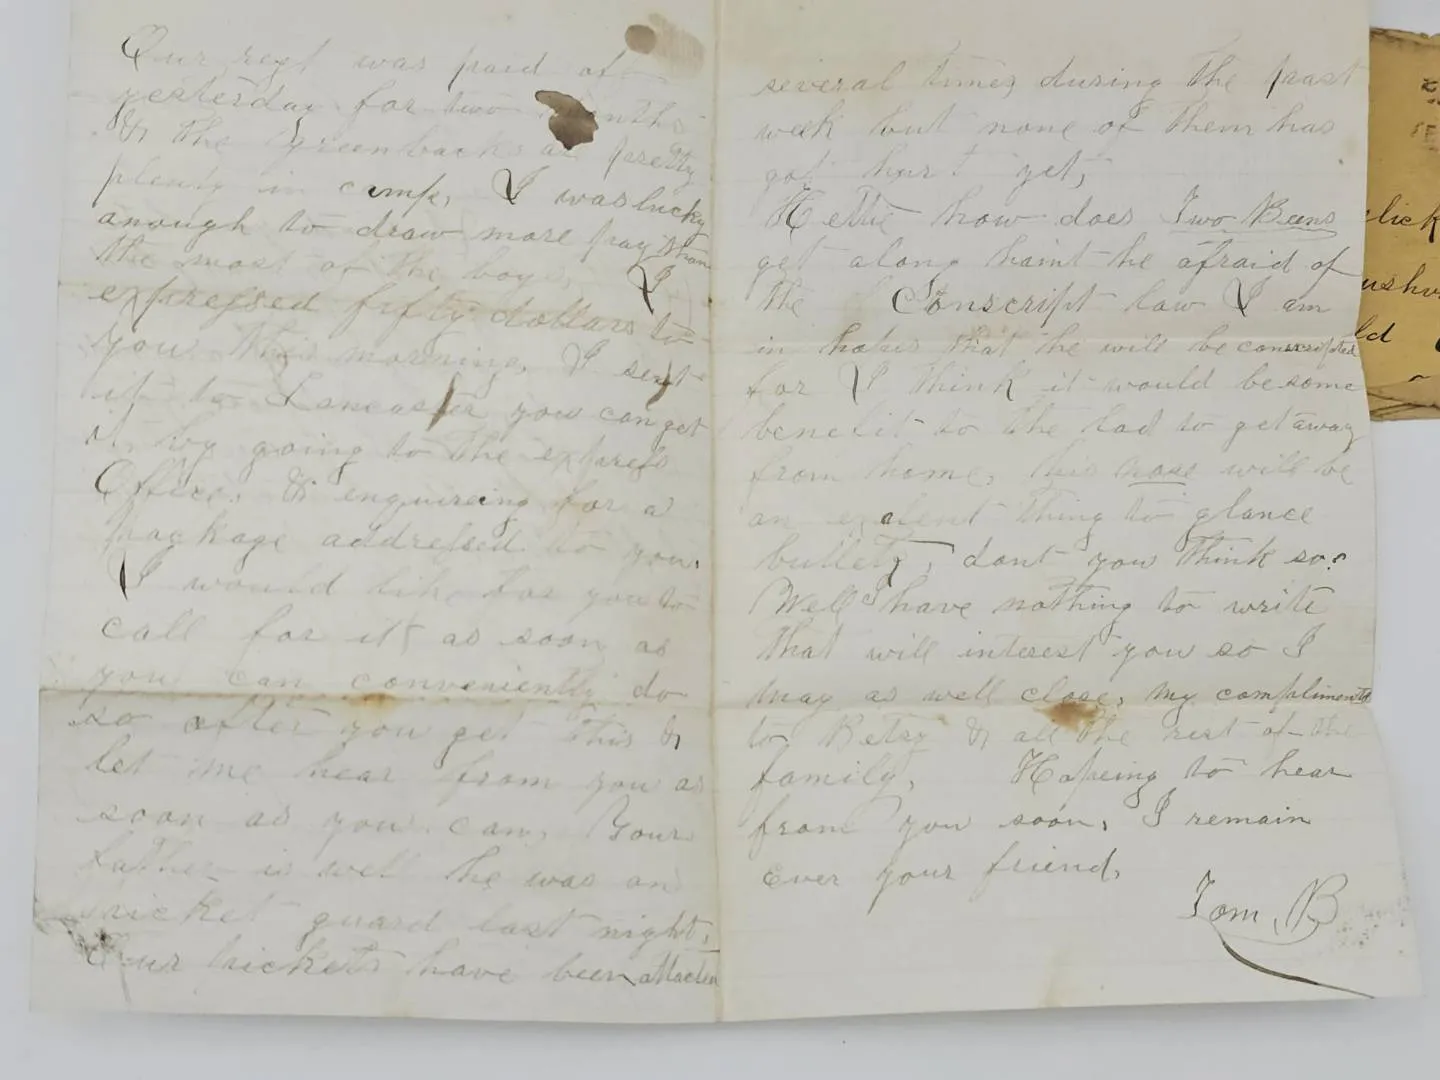 Our regt was paid off
yesterday for two months
& the Greenbacks are pretty
plenty in camp, I was lucky
anough to draw more pay than
the most of the boys, I
expressed fifty dollars to
you this morning, I sent
it to Lancaster you can get
it by going to the express
Office, & enquireing for a
package addressed to you.
I would like for you to
call for it as soon as
you can conveniently do
so after you get this &
let me hear from you as
soon as you can, Your
father is well he was on
picket guard last night,
Our pickets have been attacted
several times during the past
week but none of them has
got hurt yet,
Hettie how does Two Beens
get along haint he afraid of
the Conscript law I am
in hopes that he will be conscripted
for I think it would be some
benefit to the lad to get away
from home, his nose will be
an exelent thing to glance
bullets, dont you think so?
Well I have nothing to write
that will interest you so I
may as well close, my compliments
to Betsy & all the rest of the
family, Hopeing to hear
from you soon, I remain
Ever your friend,
Tom, B
lick
ushv
ld